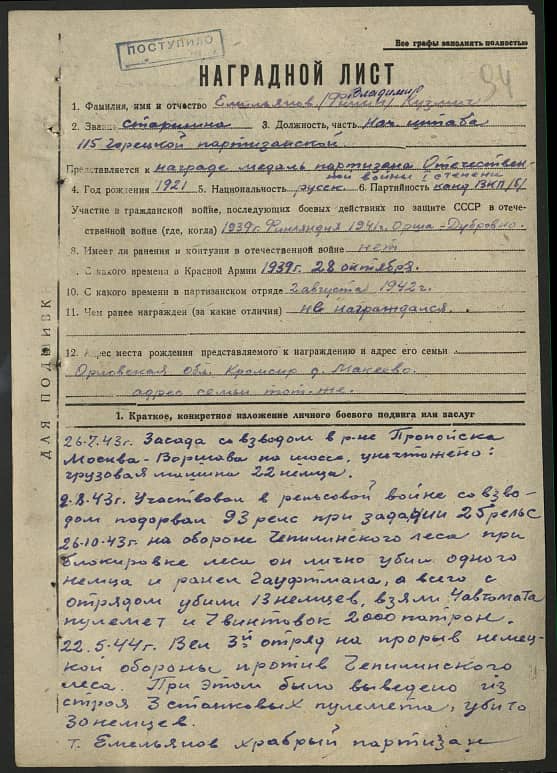 ПОСТУПИЛО
Все графы заполнять полностью
94
НАГРАДНОЙ ЛИСТ
Владимир
1. Фамилия, имя и отчество Емельянов /Филин/ Кузмич
2. Звание старшина 3. Должность, часть нач. штаба
115 Горецкой партизанской
Представляется к награде медаль партизана Отечествен-
ной войны I степени
4. Год рождения 1921 5. Национальность русск 6. Партийность канд. ВКП/б/
Участие в гражданской войне, последующих боевых действиях по защите СССР в отече-
ственной войне (где, когда) 1939г. Финляндия 1941г. Орша-Дубровно.
8. Имеет ли ранения и контузии в отечественной войне нет
С какого времени в Красной Армии 1939г. 28 октября.
10. С какого времени в партизанском отряде 2 августа 1942г.
11. Чем ранее награжден (за какие отличия) не награждался.
12. Адрес места рождения представляемого к награждению и адрес его семьи
Орловская обл. д. Макеево.
адрес семьи тот-же.
ДЛЯ ПОДШИВК
1. Краткое, конкретное изложение личного боевого подвига или заслуг
26.7.43г. Засада со взводом в р-не Пропойска
Москва-Варшава на шоссе, уничтожено:
грузовая машина 22 немца.
2.8.43г. Участвовал в рельсовой войне со взво-
дом подорвал 93 рельс при задании 25 рельс
26.10.43г. на обороне Чепилинского леса при
блокировке леса он лично убил одного
немца и ранен Гауфтмана, а всего с
отрядом убили 13 немцев, взяли 4 автомата
пулемет и 7 винтовок 2000 патрон.
22.5.44г. Вел 3й отряд на прорыв немец-
кой обороны против Чепилинского
леса. При этом было выведено из
строя 3 станковых пулемета, убито
30 немцев.
т. Емельянов храбрый партизан